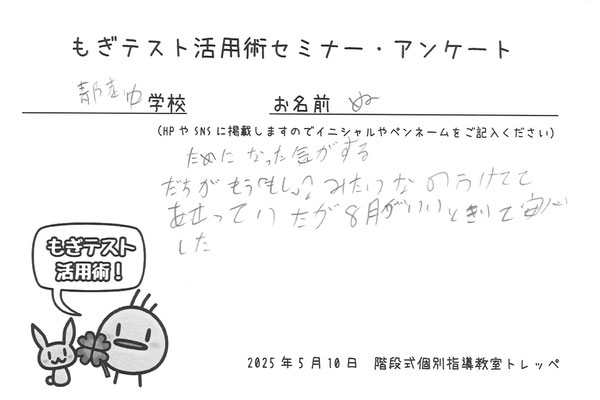 もぎテスト活用術セミナー・アンケート
学校 お名前 ぬ
（HPやSNSに掲載しますのでイニシャルやペンネームをご記入ください）
ためになった気がする
だちがもう「もし」みたいなのうけてて
あせっていたが8月がいいときいて安心
した
もぎテスト
活用術！
2025年5月10日 階段式個別指導教室トレッペ